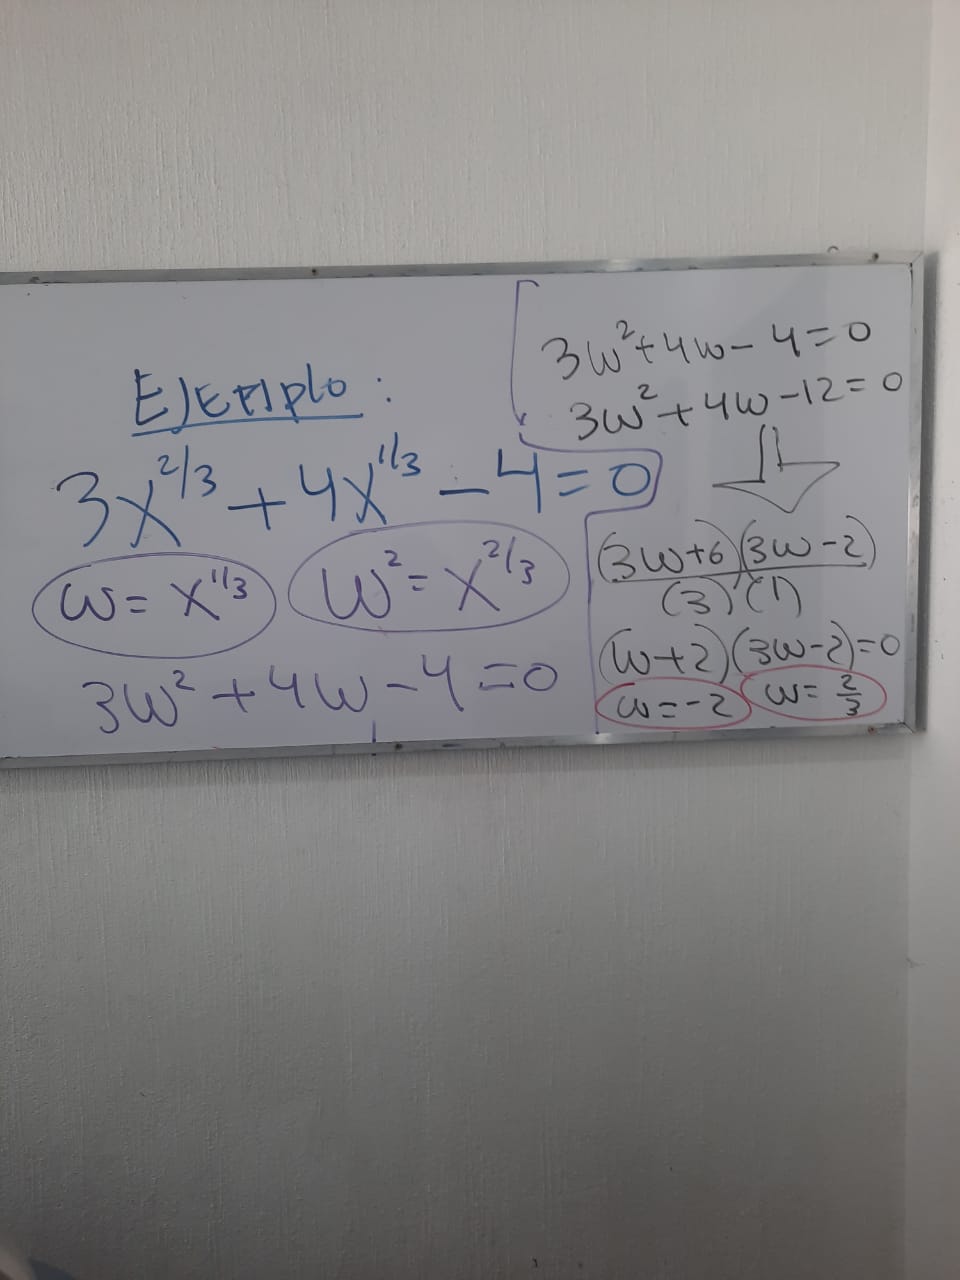 Ejemplo:
3x^{2/3} + 4x^{1/3} - 4 = 0
w = x^{1/3} w² = x^{2/3}
3w² + 4w - 4 = 0
3w² + 4w - 4 = 0
3w² + 4w - 12 = 0
(3w+6)(3w-2)
(3)(1)
(w+2)(3w-2) = 0
w = -2 w = 2/3